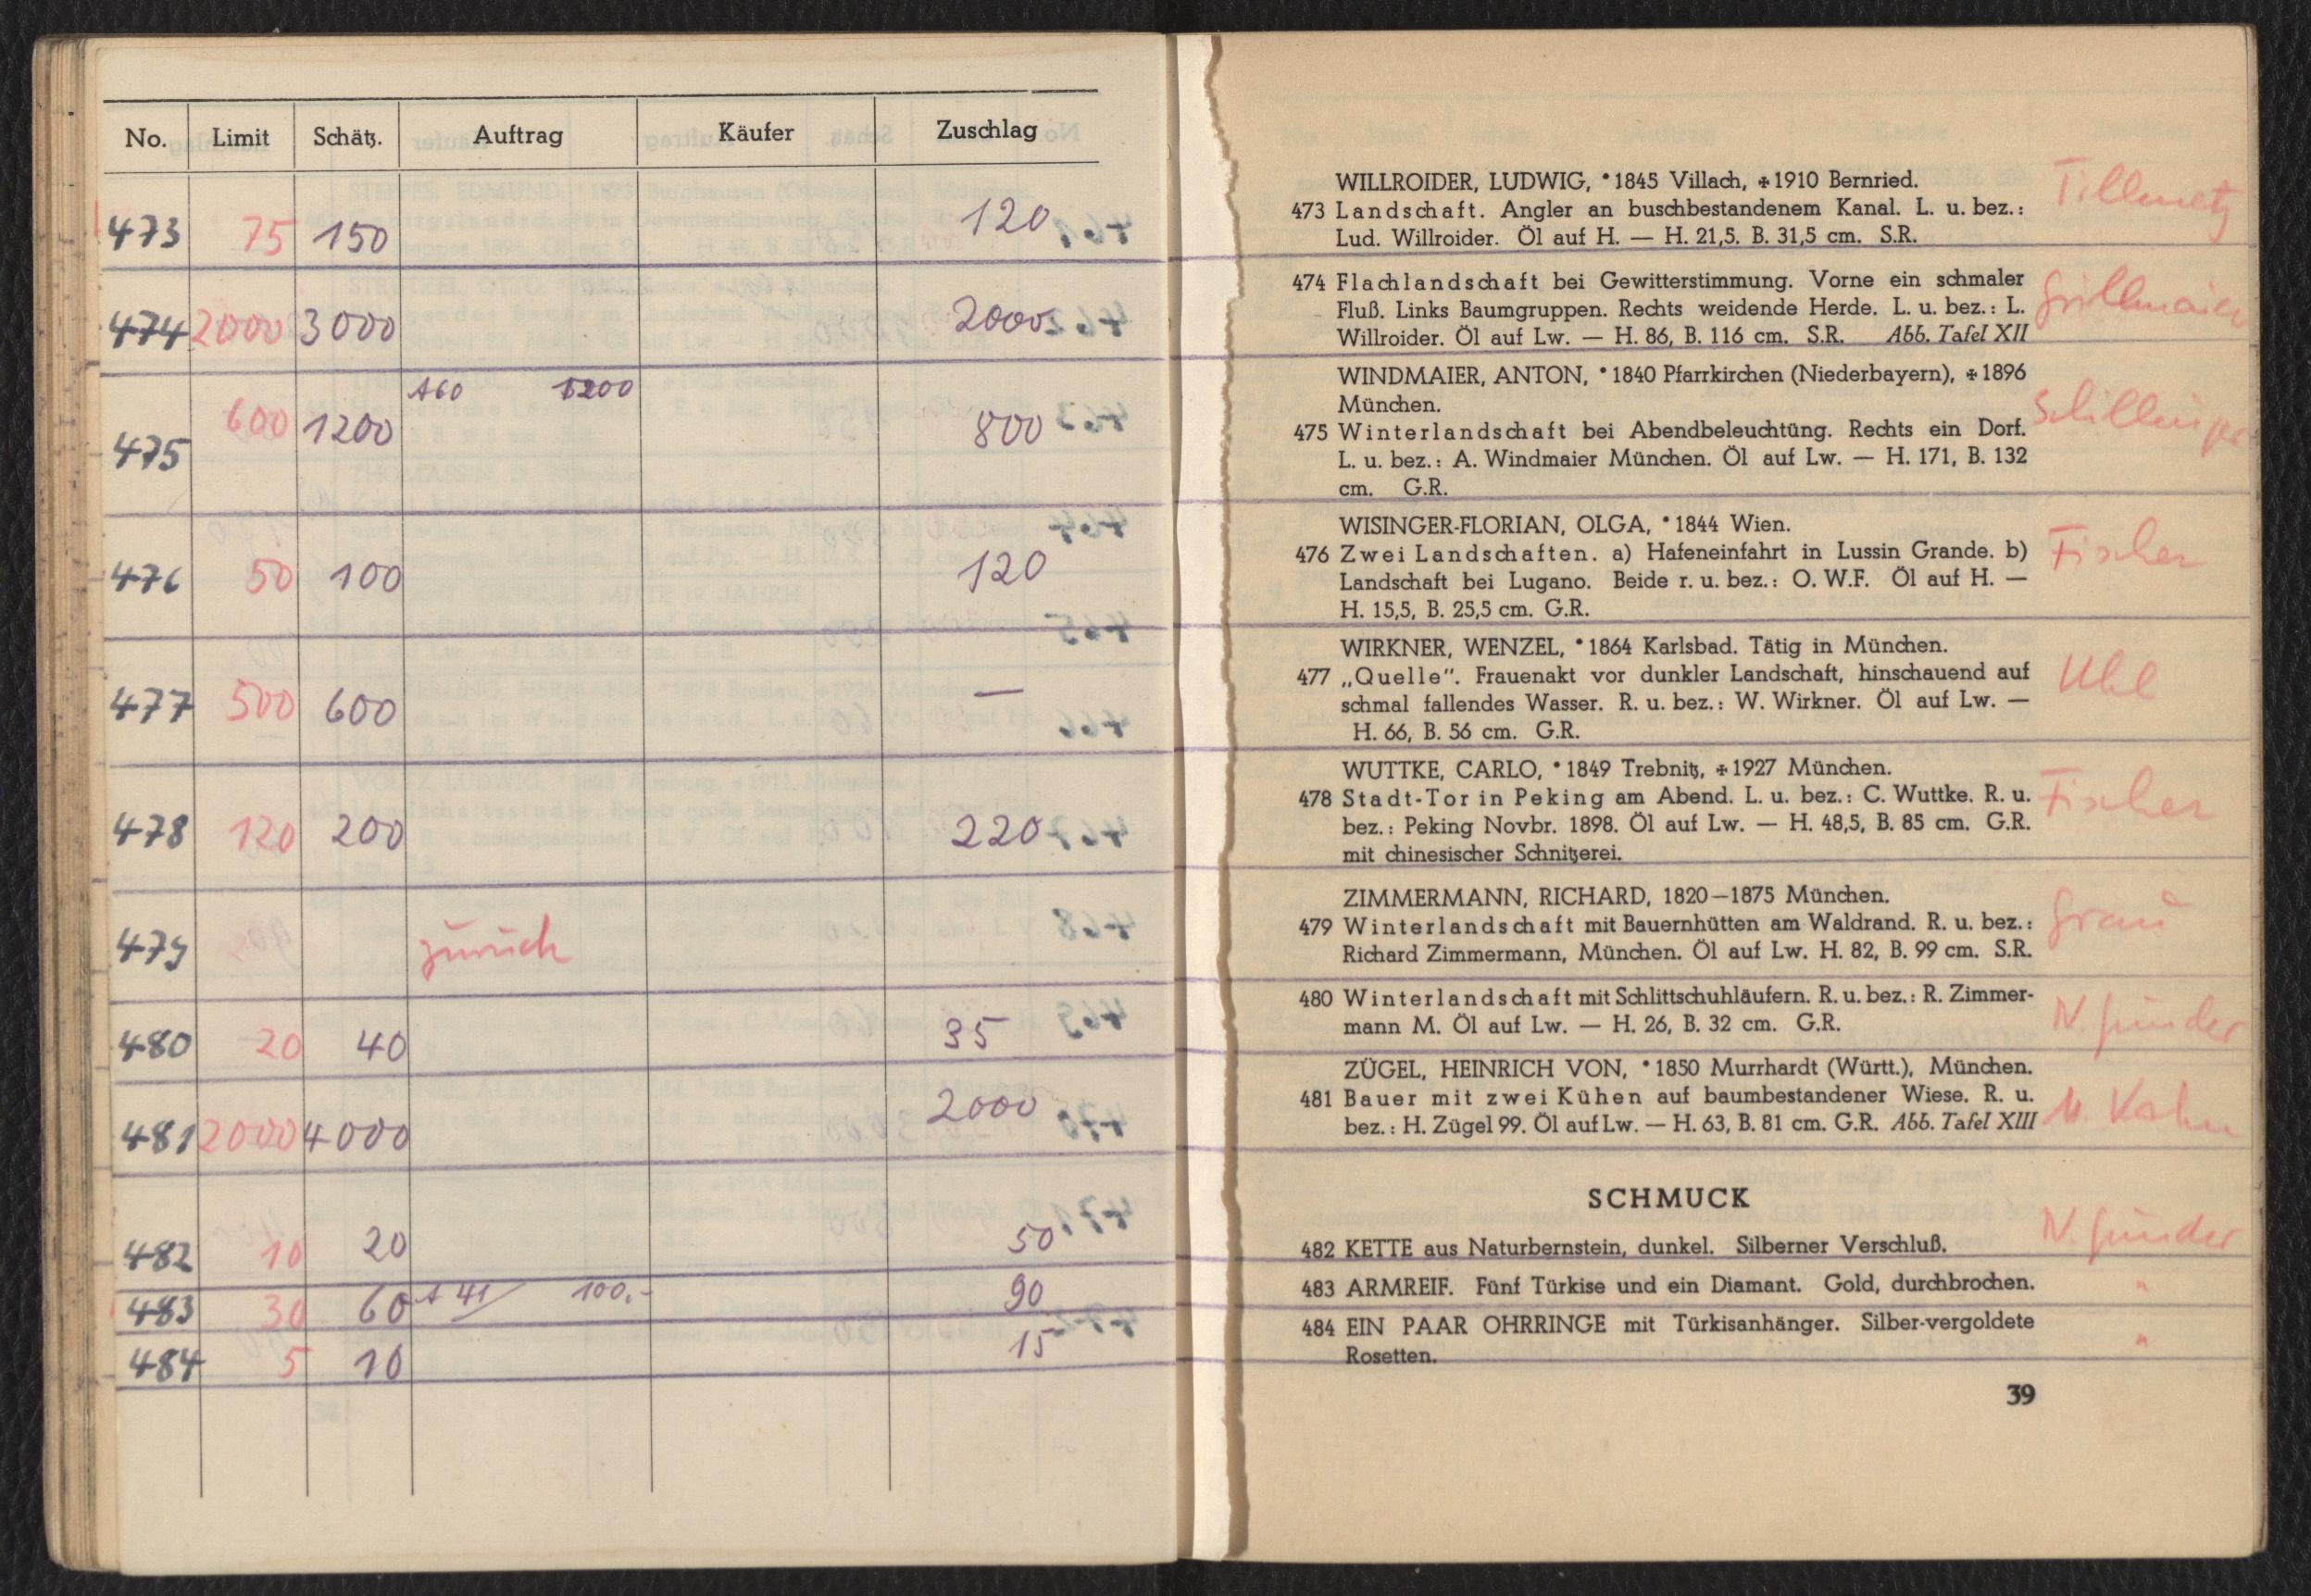 No. Limit Schätz. Auftrag Käufer Zuschlag
473 75 150 120
474 2000 3000 2000
475 600 1200 A60 1200 800
476 50 100 120
477 500 600 —
478 120 200 220
479 zurück
480 20 40 35
481 2000 4000 2000
482 10 20 50
483 30 60 A 41 100.- 90
484 5 10 15
WILLROIDER, LUDWIG, *1845 Villach, ✠1910 Bernried.
473 Landschaft. Angler an buschbestandenem Kanal. L. u. bez.:
Lud. Willroider. Öl auf H. — H. 21,5. B. 31,5 cm. S.R.
Tillmetz
474 Flachlandschaft bei Gewitterstimmung. Vorne ein schmaler
Fluß. Links Baumgruppen. Rechts weidende Herde. L. u. bez.: L.
Willroider. Öl auf Lw. — H. 86, B. 116 cm. S.R. Abb. Tafel XII
Grillmaier
WINDMAIER, ANTON, *1840 Pfarrkirchen (Niederbayern), ✠1896
München.
475 Winterlandschaft bei Abendbeleuchtüng. Rechts ein Dorf.
L. u. bez.: A. Windmaier München. Öl auf Lw. — H. 171, B. 132
cm. G.R.
WISINGER-FLORIAN, OLGA, *1844 Wien.
476 Zwei Landschaften. a) Hafeneinfahrt in Lussin Grande. b)
Landschaft bei Lugano. Beide r. u. bez.: O. W.F. Öl auf H. —
H. 15,5, B. 25,5 cm. G.R.
Fischer
WIRKNER, WENZEL, *1864 Karlsbad. Tätig in München.
477 „Quelle". Frauenakt vor dunkler Landschaft, hinschauend auf
schmal fallendes Wasser. R. u. bez.: W. Wirkner. Öl auf Lw. —
H. 66, B. 56 cm. G.R.
Uhl
WUTTKE, CARLO, *1849 Trebnitz, ✠1927 München.
478 Stadt-Tor in Peking am Abend. L. u. bez.: C. Wuttke. R. u.
bez.: Peking Novbr. 1898. Öl auf Lw. — H. 48,5, B. 85 cm. G.R.
mit chinesischer Schnitzerei.
Fischer
ZIMMERMANN, RICHARD, 1820—1875 München.
479 Winterlandschaft mit Bauernhütten am Waldrand. R. u. bez.:
Richard Zimmermann, München. Öl auf Lw. H. 82, B. 99 cm. S.R.
Grau
480 Winterlandschaft mit Schlittschuhläufern. R. u. bez.: R. Zimmer-
mann M. Öl auf Lw. — H. 26, B. 32 cm. G.R.
N. Günder
ZÜGEL, HEINRICH VON, *1850 Murrhardt (Württ.), München.
481 Bauer mit zwei Kühen auf baumbestandener Wiese. R. u.
bez.: H. Zügel 99. Öl auf Lw. — H. 63, B. 81 cm. G.R. Abb. Tafel XIII
Kahn
SCHMUCK
482 KETTE aus Naturbernstein, dunkel. Silberner Verschluß.
N. Günder
483 ARMREIF. Fünf Türkise und ein Diamant. Gold, durchbrochen. "
484 EIN PAAR OHRRINGE mit Türkisanhänger. Silber-vergoldete "
Rosetten.
39